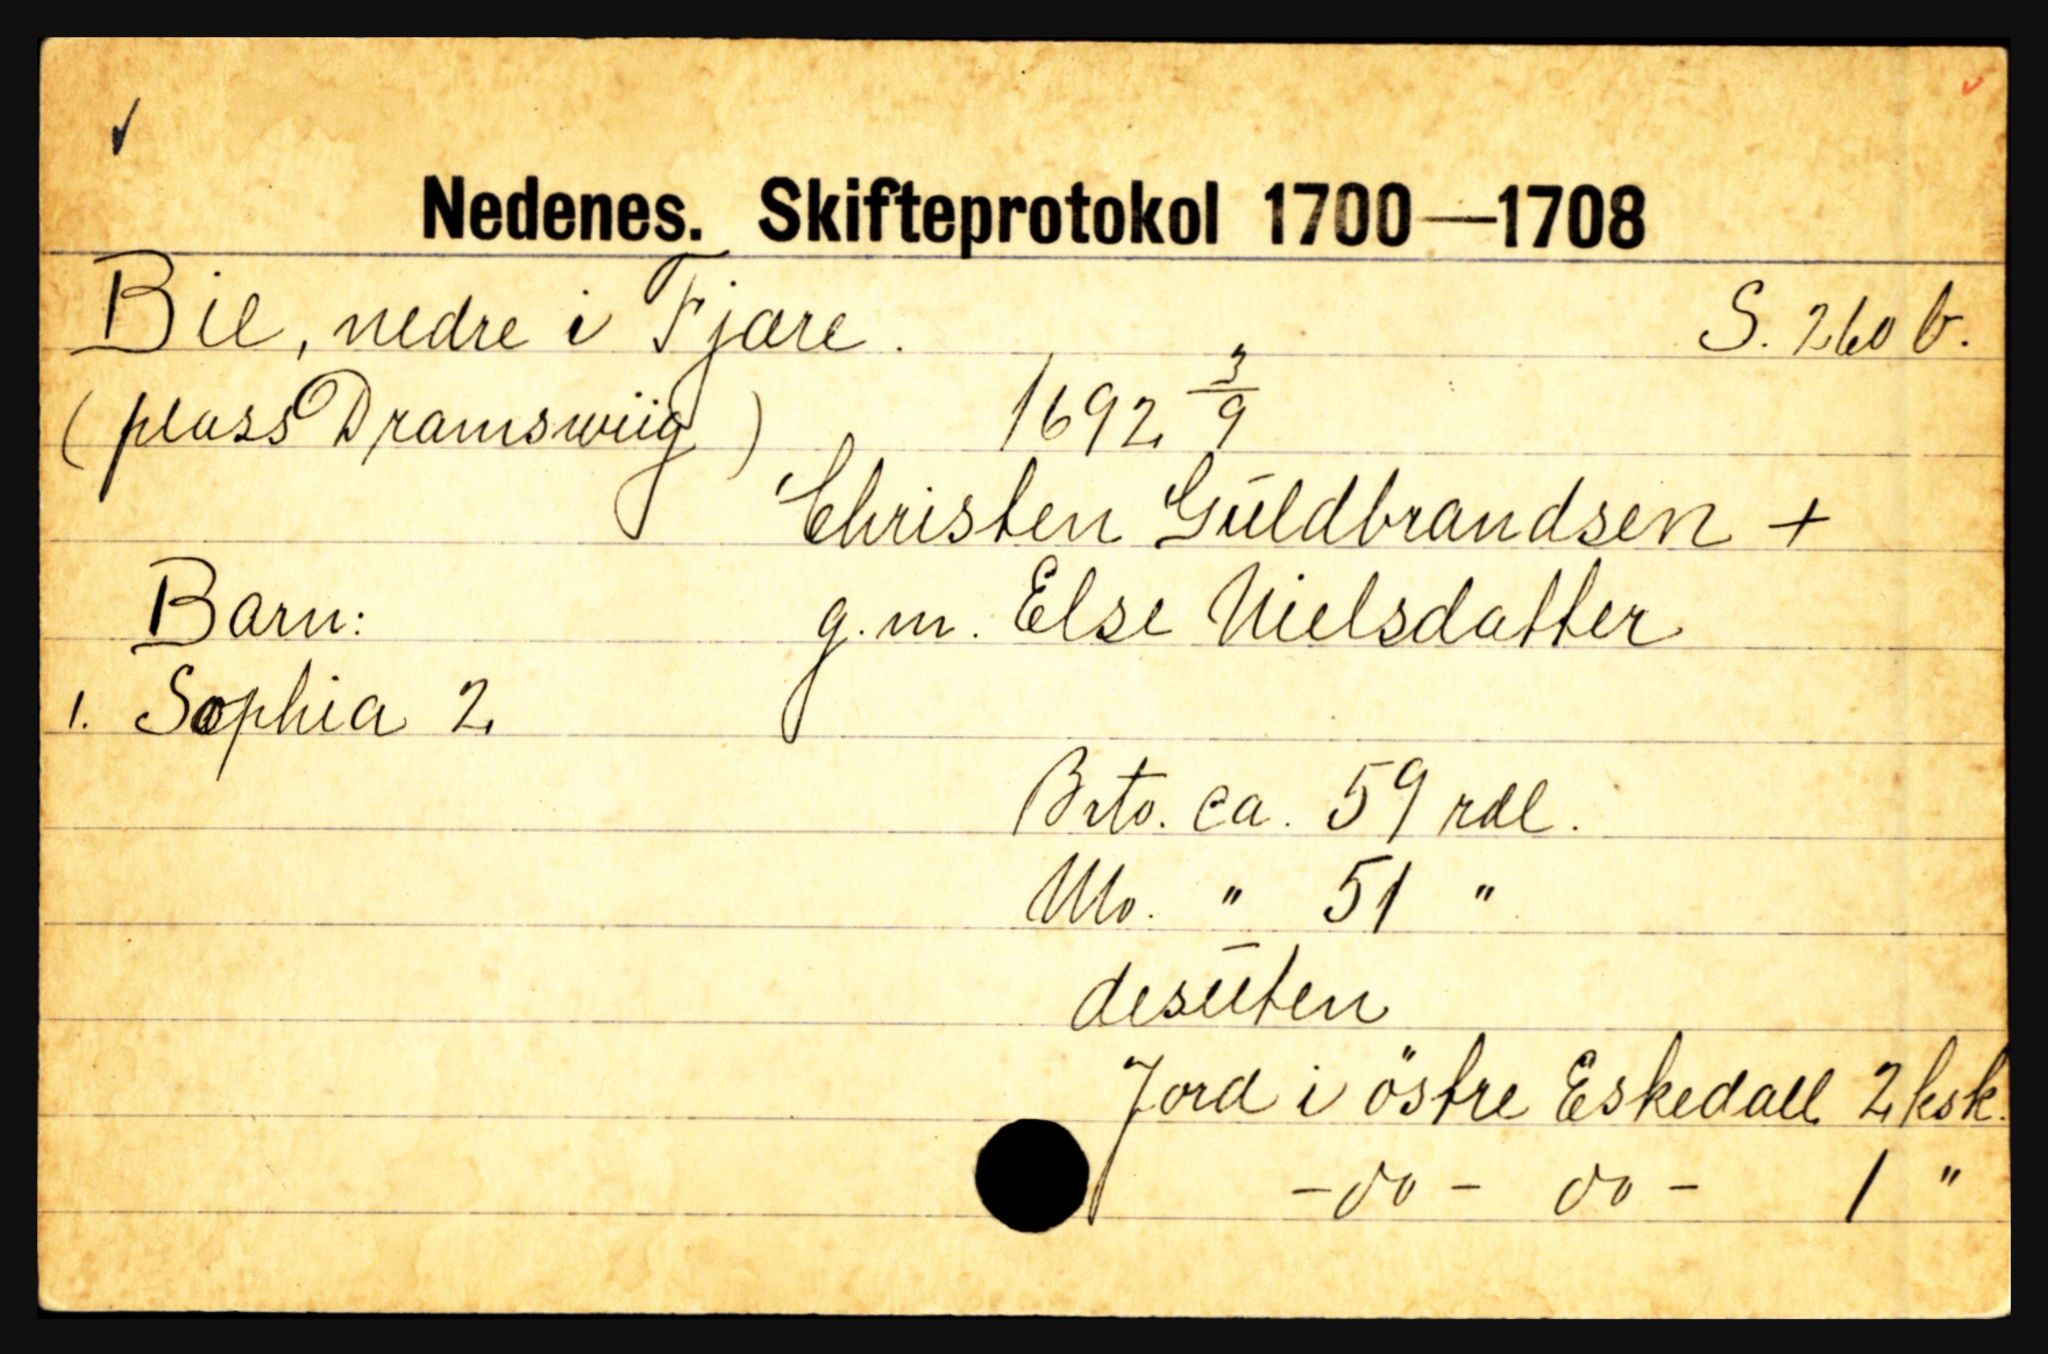 ✓
Nedenes. Skifteprotokol 1700—1708
Bie, nedre i Fjære. S. 260 b.
(plass Dramswiig) 1692 3/9
Christen Guldbrandsen +
Barn: g.m. Else Nielsdatter
1. Sophia 2
Brto. ca. 59 rdl.
Nto. " 51 "
desuten
Jord i östre Eskedall 2 ksk.
- do - do - 1 "